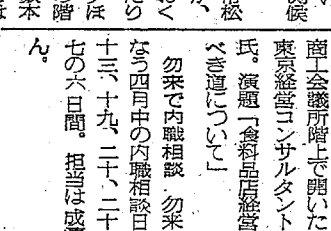 商工会議所階上で開いた
東京経営コンサルタント
氏。演題「食料品店経営
べき道について」
勿来で内職相談 勿来
なう四月中の内職相談日
十三、十九、二十、二十
七の六日間。担当は成
ん。